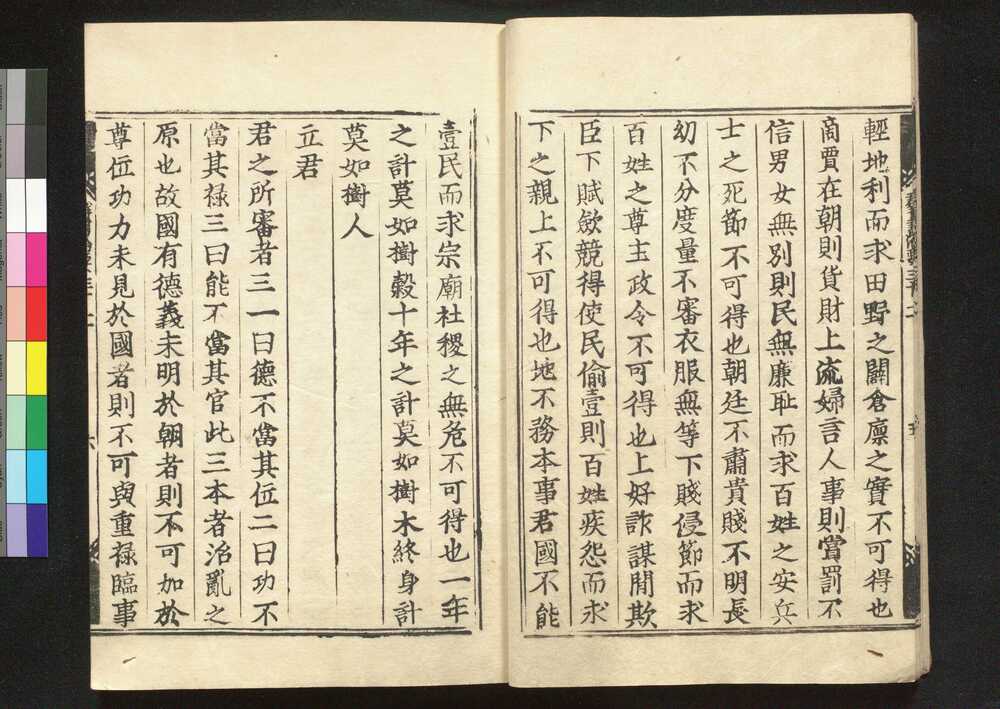 輕地利而求田野之闢倉廩之實不可得也
商賈在朝則貨財上流婦言人事則賞罰不
信男女無別則民無廉耻而求百姓之安兵
士之死節不可得也朝廷不肅貴賤不明長
幼不分度量不審衣服無等下賤侵節而求
百姓之尊主政令不可得也上好詐謀閒欺
臣下賦斂競得使民偷壹則百姓疾怨而求
下之親上不可得也地不務本事君國不能
壹民而求宗廟社稷之無危不可得也一年
之計莫如樹穀十年之計莫如樹木終身計
莫如樹人
立君
君之所審者三一曰德不當其位二曰功不
當其祿三曰能不當其官此三本者治亂之
原也故國有德義未明於朝者則不可加於
尊位功力未見於國者則不可與重祿臨事